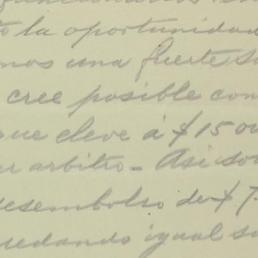 la oportunidad
mos una fuerte
cree posible con
que eleve á $ 15 00
arbitro - Asi
desembolso de $ 7
quedando igual